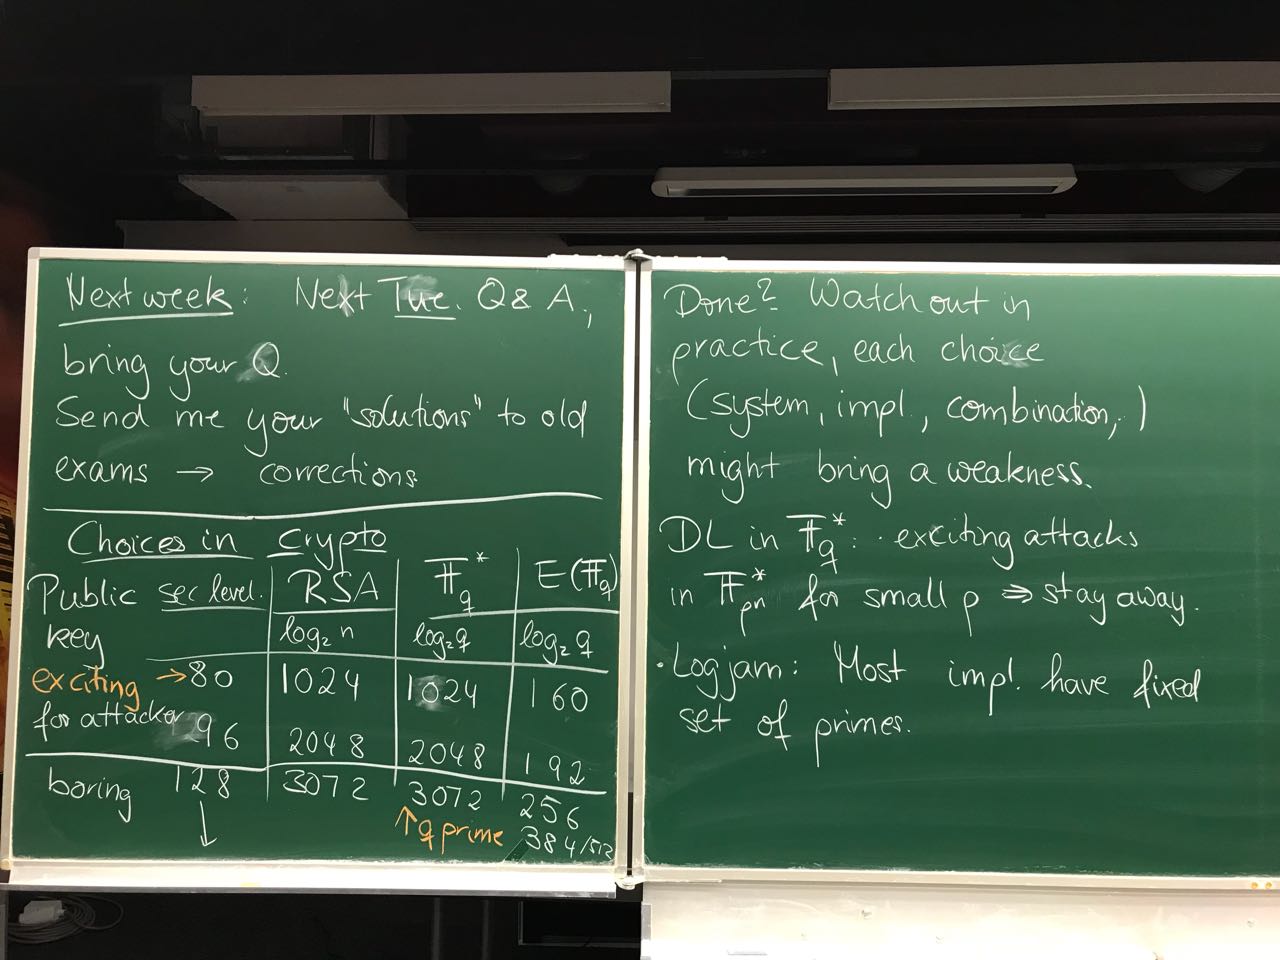 Next week: Next Tue. Q & A,
bring your Q.
Send me your "solutions" to old
exams → corrections.
Choices in crypto
Public sec level. RSA F_q^* E(F_q)
key log₂ n log₂ q log₂ q
exciting → 80 1024 1024 160
for attacker 96 2048 2048 192
boring 128 3072 3072 256
↓ ↑ q prime 384/512
Done? Watch out in
practice, each choice
(system, impl., combination, .)
might bring a weakness.
DL in F_q^*: · exciting attacks
in F_{p^n}^* for small p ⇒ stay away.
· Logjam: Most impl. have fixed
set of primes.